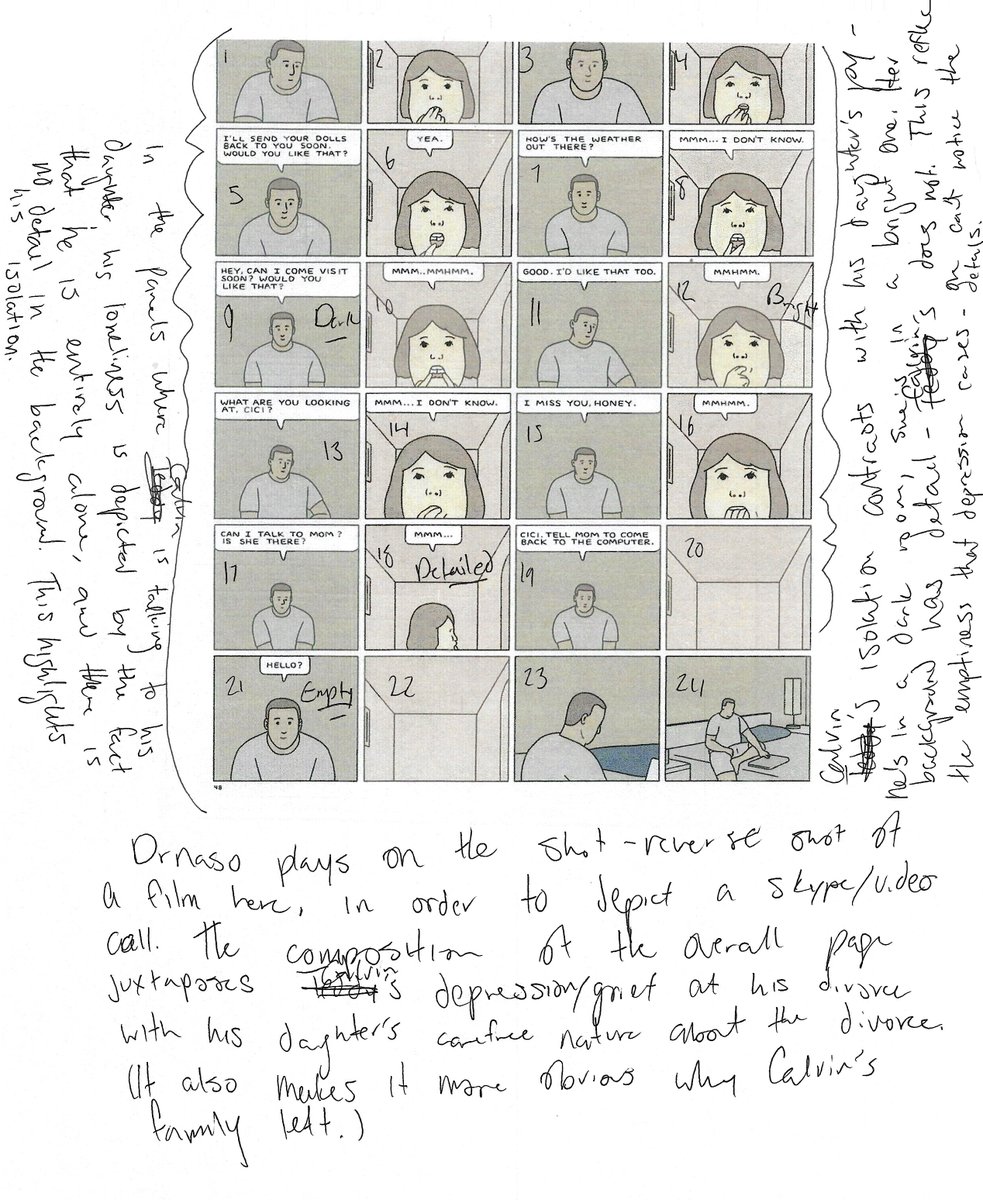 1
2
3
4
I'LL SEND YOUR DOLLS
BACK TO YOU SOON.
WOULD YOU LIKE THAT?
5
YEA.
6
HOW'S THE WEATHER
OUT THERE?
7
MMM... I DON'T KNOW.
8
HEY, CAN I COME VISIT
SOON? WOULD YOU
LIKE THAT?
9
Dark
MMM...MMHMM.
10
GOOD. I'D LIKE THAT TOO.
11
MMHMM.
12
Bright
WHAT ARE YOU LOOKING
AT, CICI?
13
MMM... I DON'T KNOW.
14
I MISS YOU, HONEY.
15
MMHMM.
16
CAN I TALK TO MOM?
IS SHE THERE?
17
MMM...
18
Detailed
CICI, TELL MOM TO COME
BACK TO THE COMPUTER.
19
20
HELLO?
21
Empty
22
23
24
48
In the panels where Calvin is talking to his
daughter his loneliness is depicted by the fact
that he is entirely alone, and there is
no detail in the background. This highlights
his isolation.
Calvin's isolation contrasts with his daughter's joy -
he's in a dark room, she is in a bright one. Her
background has detail - Calvin's does not. This
the emptiness that depression causes - can't notice the
details.
Drnaso plays on the shot-reverse shot of
a film here, in order to depict a skype/video
call. The composition of the overall page
juxtaposes Calvin's depression/grief at his divorce
with his daughter's carefree nature about the divorce.
(It also makes it more obvious why Calvin's
family left.)